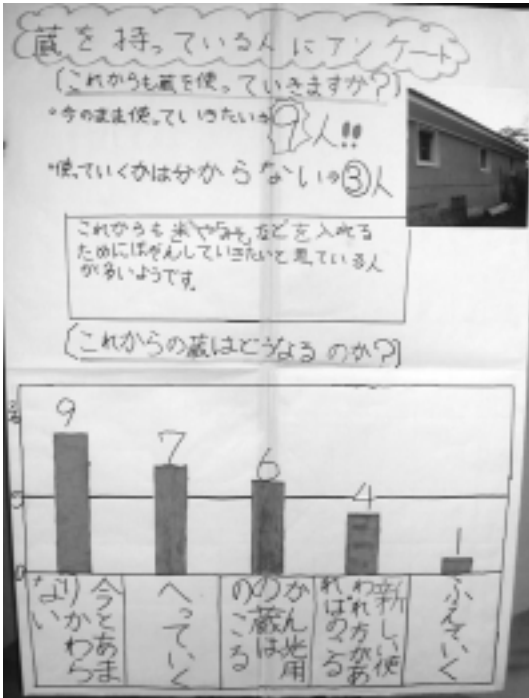 蔵を持っている人にアンケート
(これからも蔵を使っていきますか?)
・今のまま使っていきたい⇒9人!!
・使っていくかは分からない⇒③人
これからも米やみそなどを入れる
ためにほぞんしていきたいと思っている人
が多いようです。
(これからの蔵はどうなるのか?)
9
7
6
4
1
10
5
0
今とあま
りかわら
ない
へっていく
かんむ用
の蔵は
のこる
新しい使
われ方があ
ればのこる
ふえていく